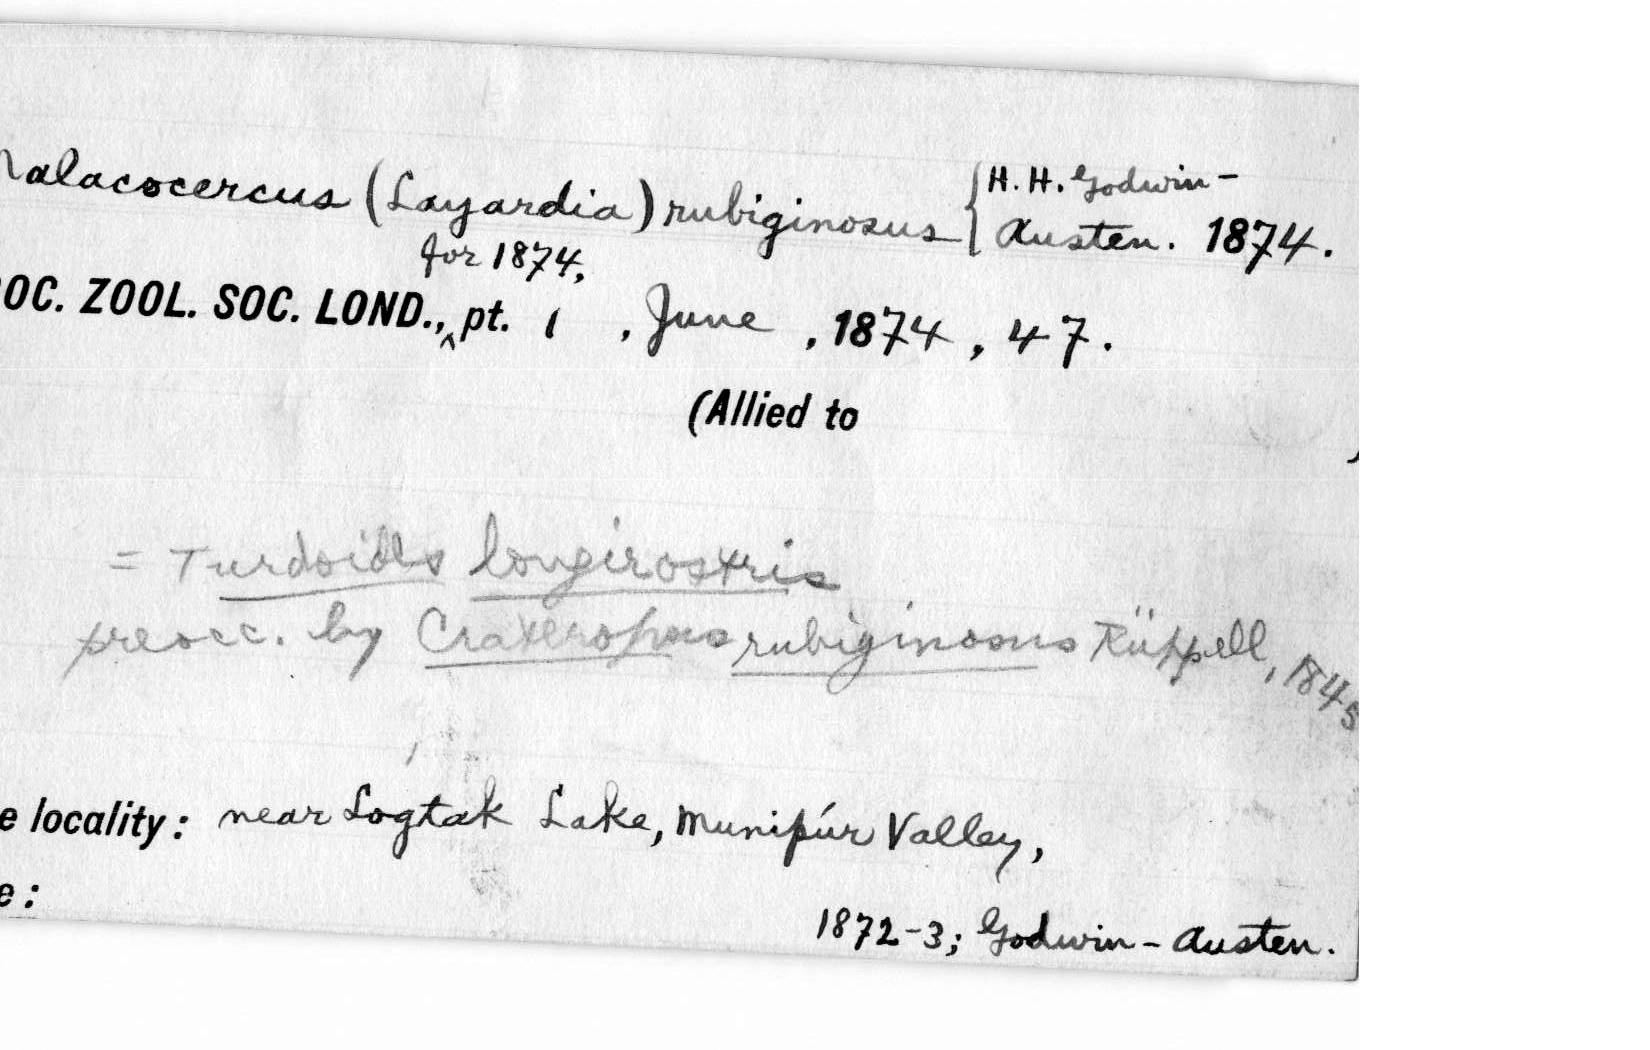 Malacocercus (Layardia) rubiginosus { H. H. Godwin-
Austen. 1874.
for 1874,
OC. ZOOL. SOC. LOND., ^ pt. 1 , June , 1874 , 47.
(Allied to )
= Turdoides longirostris
preocc. by Crateropus rubiginosus Rüppell, 1845
e locality: near Logtak Lake, Munipúr Valley,
e:
1872-3; Godwin-Austen.